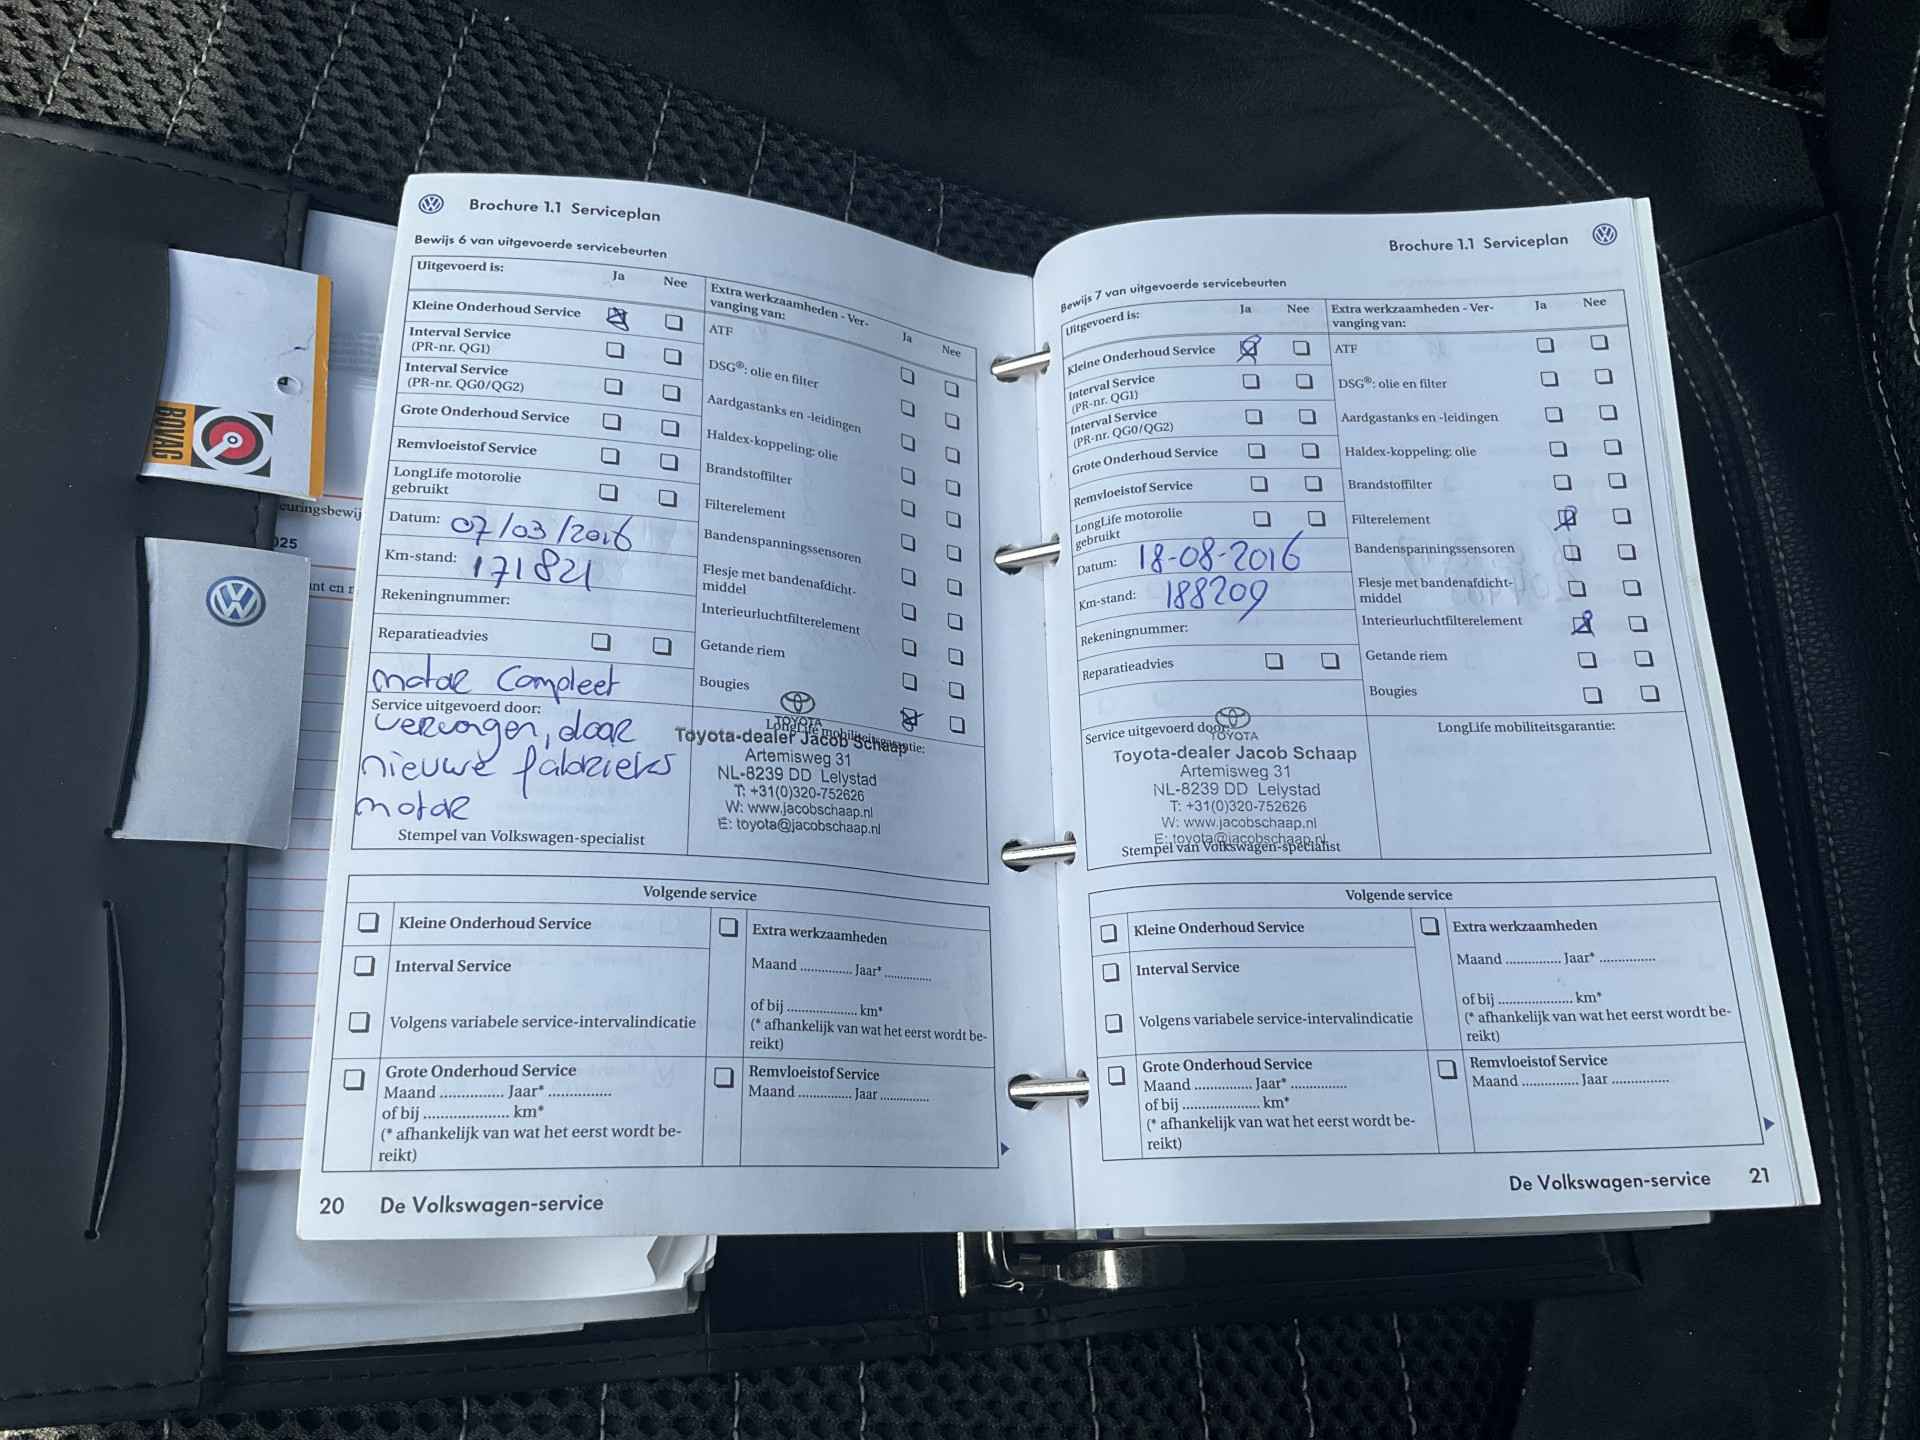 Brochure 1.1 Serviceplan
Bewijs 6 van uitgevoerde servicebeurten
Uitgevoerd is:
Ja
Nee
Kleine Onderhoud Service
Interval Service
(PR-nr. QG1)
Interval Service
(PR-nr. QG0/QG2)
Grote Onderhoud Service
Remvloeistof Service
LongLife motorolie
gebruikt
Datum: 07/03/2016
Km-stand: 171821
Rekeningnummer:
Reparatieadvies
motor Compleet
Service uitgevoerd door:
vervangen, door
nieuwe fabrieks
motor
Stempel van Volkswagen-specialist
Extra werkzaamheden - Ver-
vanging van:
Ja
Nee
ATF
DSG®: olie en filter
Aardgastanks en -leidingen
Haldex-koppeling: olie
Brandstoffilter
Filterelement
Bandenspanningssensoren
Flesje met bandenafdicht-
middel
Interieurluchtfilterelement
Getande riem
Bougies
TOYOTA
LongLife mobiliteitsgarantie:
Toyota-dealer Jacob Schaap
Artemisweg 31
NL-8239 DD Lelystad
T: +31(0)320-752626
W: www.jacobschaap.nl
E: toyota@jacobschaap.nl
Volgende service
Kleine Onderhoud Service
Interval Service
Volgens variabele service-intervalindicatie
Grote Onderhoud Service
Maand ............... Jaar* ...............
of bij .................... km*
(* afhankelijk van wat het eerst wordt be-
reikt)
Extra werkzaamheden
Maand .............. Jaar* .............
of bij ................... km*
(* afhankelijk van wat het eerst wordt be-
reikt)
Remvloeistof Service
Maand .............. Jaar .............
20 De Volkswagen-service
Brochure 1.1 Serviceplan
Bewijs 7 van uitgevoerde servicebeurten
Uitgevoerd is:
Ja
Nee
Kleine Onderhoud Service
Interval Service
(PR-nr. QG1)
Interval Service
(PR-nr. QG0/QG2)
Grote Onderhoud Service
Remvloeistof Service
LongLife motorolie
gebruikt
Datum: 18-08-2016
Km-stand: 188209
Rekeningnummer:
Reparatieadvies
Service uitgevoerd door:
TOYOTA
Toyota-dealer Jacob Schaap
Artemisweg 31
NL-8239 DD Lelystad
T: +31(0)320-752626
W: www.jacobschaap.nl
E: toyota@jacobschaap.nl
Stempel van Volkswagen-specialist
Extra werkzaamheden - Ver-
vanging van:
Ja
Nee
ATF
DSG®: olie en filter
Aardgastanks en -leidingen
Haldex-koppeling: olie
Brandstoffilter
Filterelement
Bandenspanningssensoren
Flesje met bandenafdicht-
middel
Interieurluchtfilterelement
Getande riem
Bougies
LongLife mobiliteitsgarantie:
Volgende service
Kleine Onderhoud Service
Interval Service
Volgens variabele service-intervalindicatie
Grote Onderhoud Service
Maand .............. Jaar* .............
of bij .................... km*
(* afhankelijk van wat het eerst wordt be-
reikt)
Extra werkzaamheden
Maand .............. Jaar* ..............
of bij .................... km*
(* afhankelijk van wat het eerst wordt be-
reikt)
Remvloeistof Service
Maand .............. Jaar ..............
De Volkswagen-service 21
BOVAG